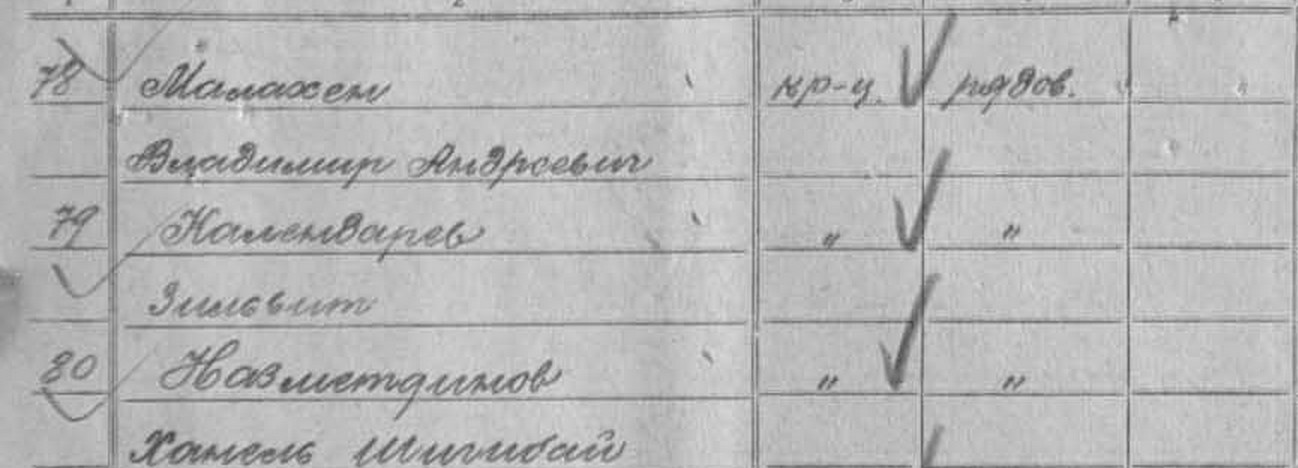 78 Малахен кр-ц. рядов.
Владимир Андреевич
79 Календарев " "
Зильвит
80 Назметдинов " "
Ханель Шигибай